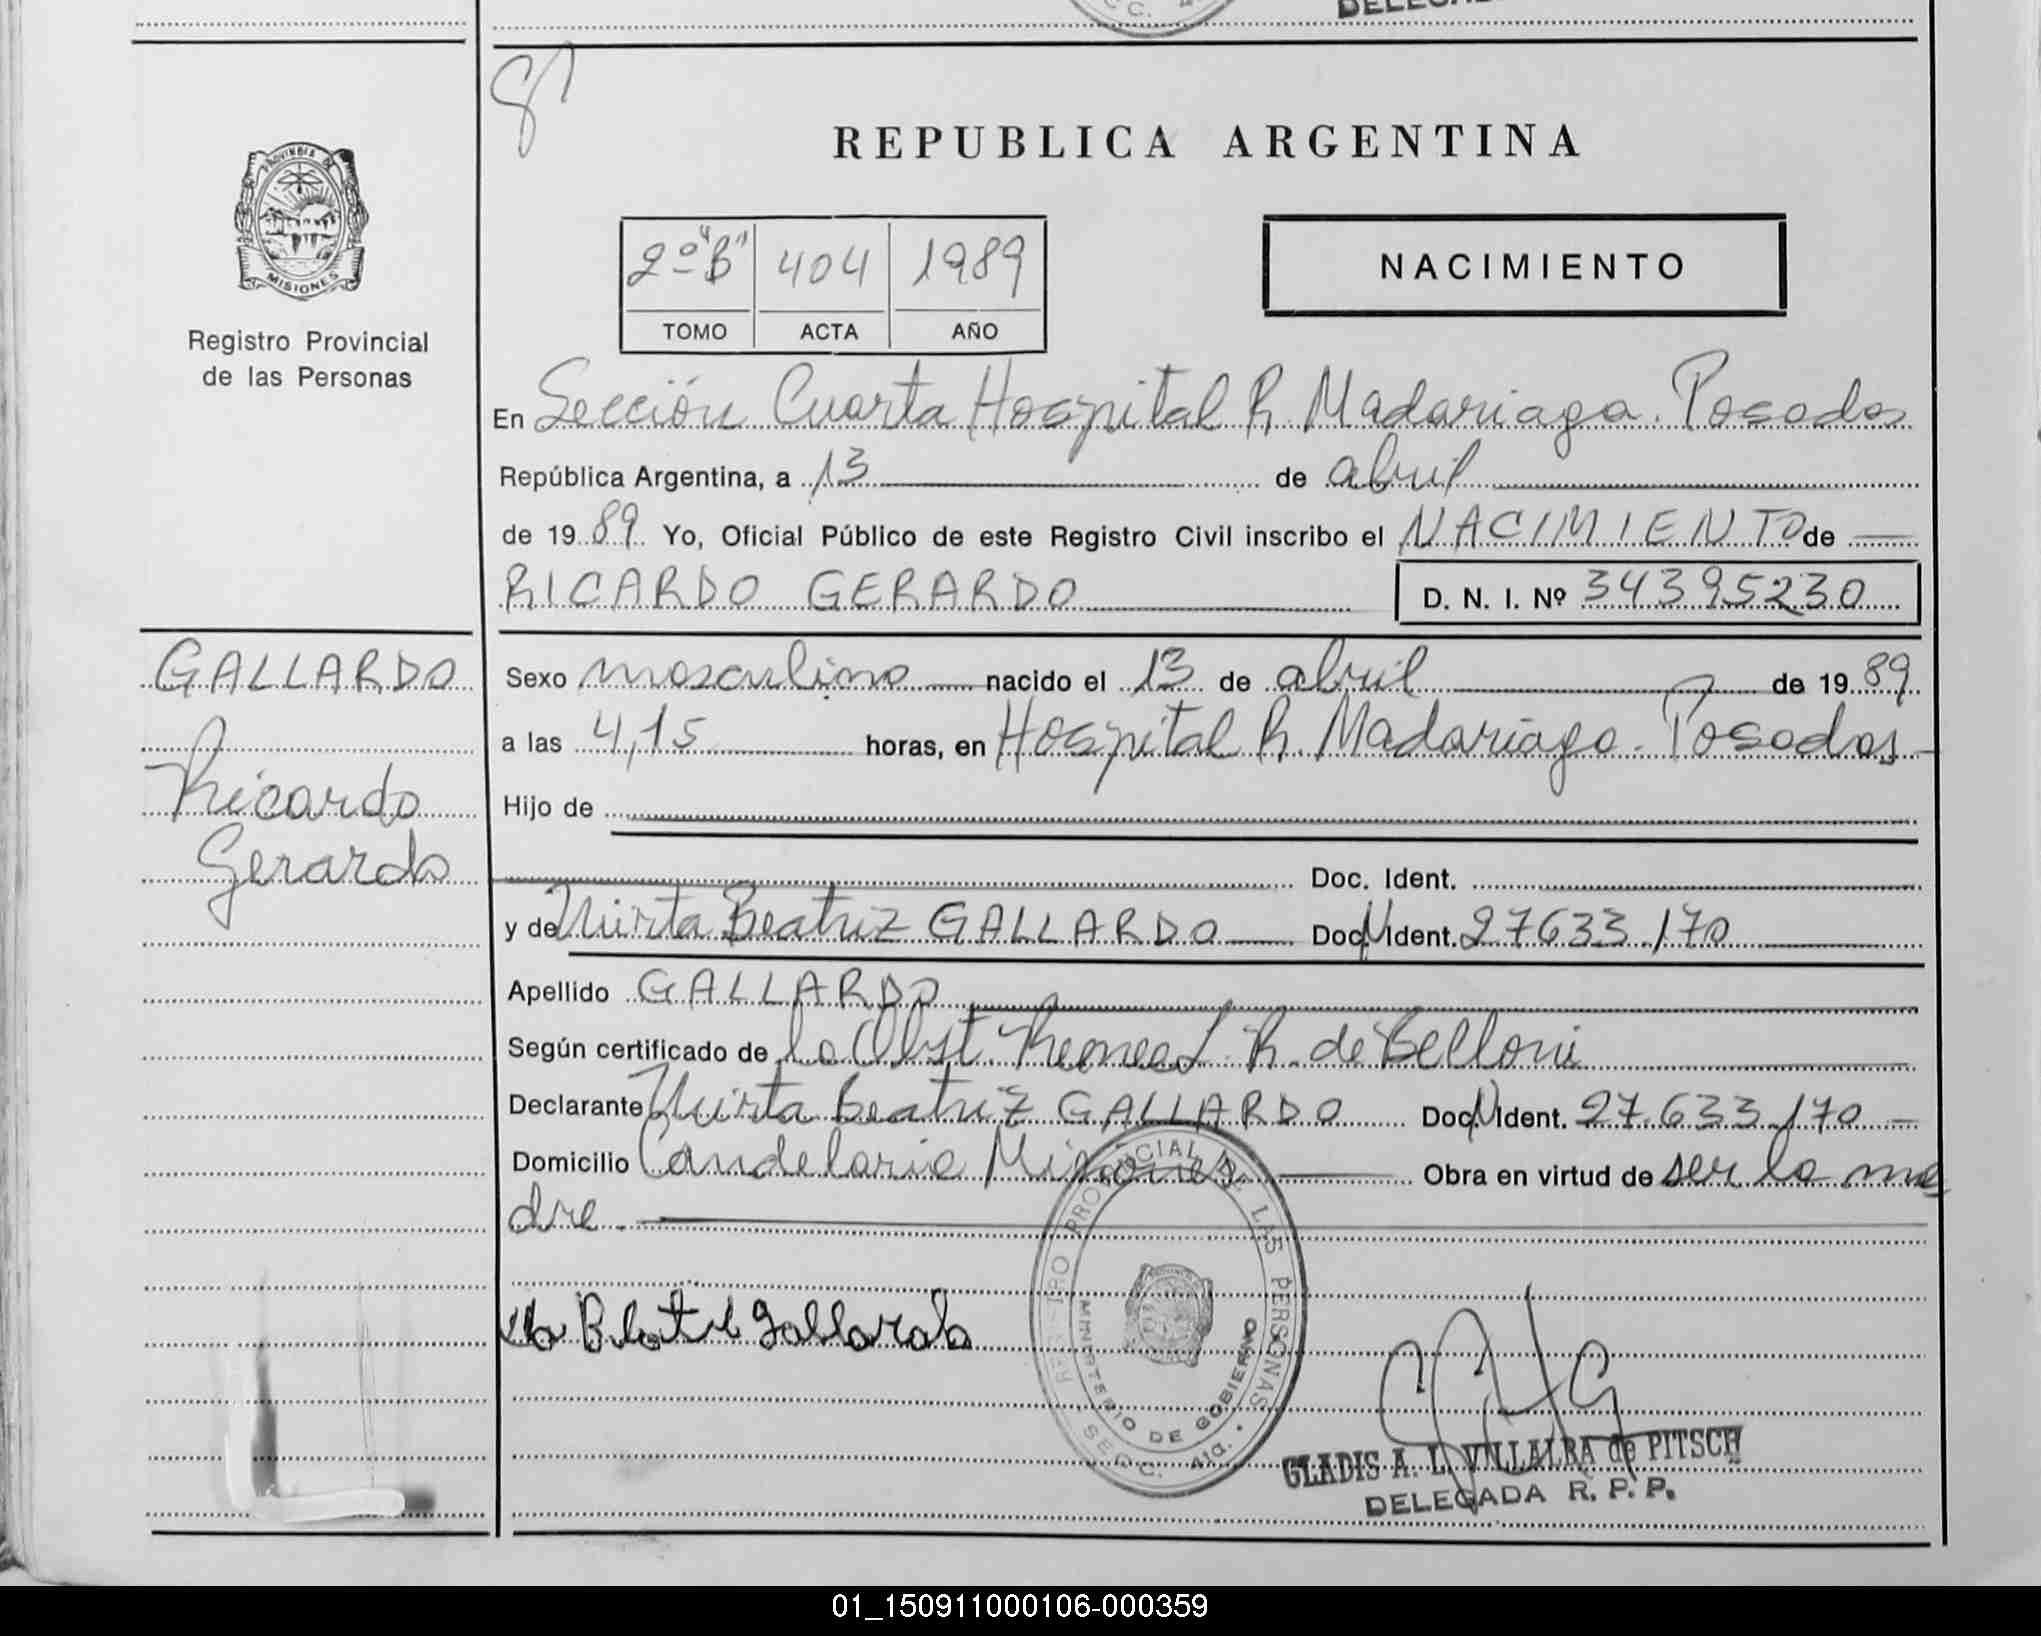 DELEGA
8
REPUBLICA ARGENTINA
PROVINCIA DE
MISIONES
Registro Provincial
de las Personas
2º "B" 404 1989
TOMO ACTA AÑO
NACIMIENTO
En Sección Cuarta Hospital R. Madariaga. Posadas
República Argentina, a 13 de abril
de 1989 Yo, Oficial Público de este Registro Civil inscribo el NACIMIENTO de
RICARDO GERARDO D. N. I. Nº 34395230
GALLARDO
Ricardo
Gerardo
Sexo masculino nacido el 13 de abril de 1989
a las 4,15 horas, en Hospital R. Madariaga. Posadas
Hijo de
Doc. Ident.
y de Mirta Beatriz GALLARDO Doc. Ident. 27633.170
Apellido GALLARDO
Según certificado de la Obst. L. R. de Belloni
Declarante Mirta Beatriz GALLARDO Doc. Ident. 27.633.170
Domicilio Candelaria Misiones Obra en virtud de ser la ma
dre.
Gallardo
REGISTRO PROVINCIAL DE LAS PERSONAS
MINISTERIO DE GOBIERNO
SECC. 4ta.
GLADIS A. L. VILLALBA de PITSCH
DELEGADA R. P. P.
01_150911000106-000359